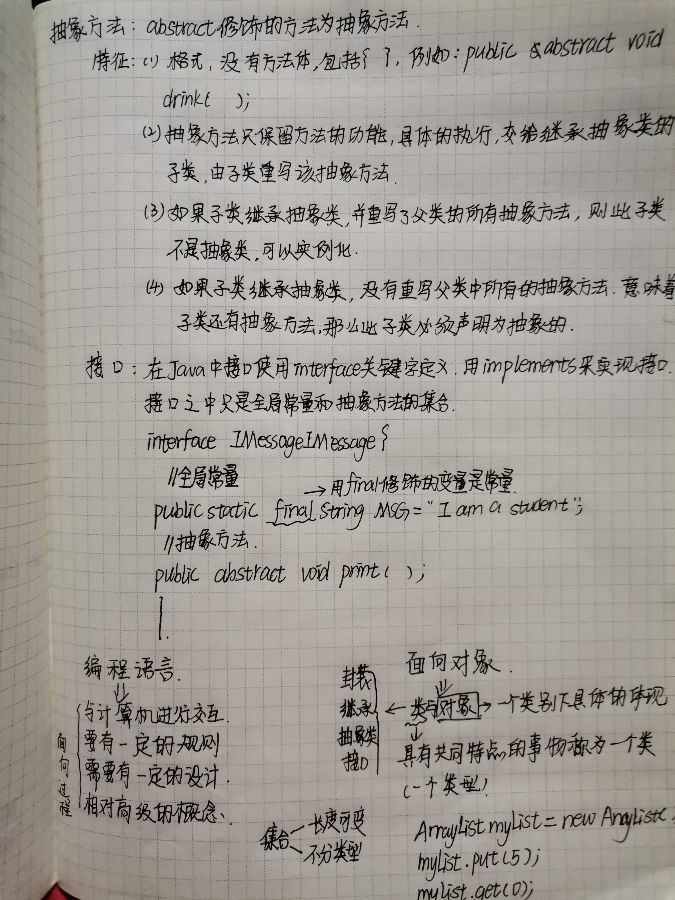 抽象方法：abstract修饰的方法为抽象方法.
特征：(1) 格式，没有方法体，包括{ }，例如：public abstract void
drink( );
(2) 抽象方法只保留方法的功能，具体的执行，交给继承抽象类的
子类，由子类重写该抽象方法.
(3) 如果子类继承抽象类，并重写了父类的所有抽象方法，则此子类
不是抽象类，可以实例化.
(4) 如果子类继承抽象类，没有重写父类中所有的抽象方法. 意味着
子类还有抽象方法，那么此子类必须声明为抽象的.
接口：在Java中接口使用interface关键字定义. 用implements来实现接口.
接口之中只是全局常量和抽象方法的集合.
interface IMessageIMessage{
//全局常量
→用final修饰的变量是常量
public static final String MSG="I am a student";
//抽象方法.
public abstract void print( );
}.
编程语言.
面向过程
与计算机进行交互.
要有一定的规则
需要有一定的设计.
相对高级的概念.
面向对象.
封装
继承
抽象类
接口
← 类与对象 → 一个类别下具体的体现
具有共同特点的事物称为一个类
(一个类型)
集合
长度可变
不分类型
ArrayList mylist = new ArrayList(
mylist.put(5);
mylist.get(0);